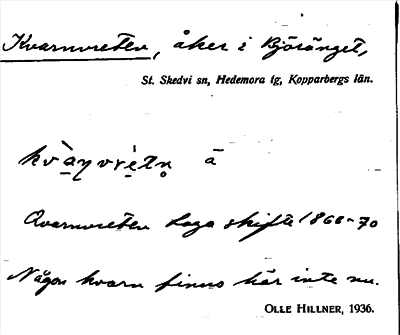 Kvarnvreten, åker i Björänget,
St. Skedvi sn, Hedemora tg, Kopparbergs län.
å
Qvarnvreten Laga skifte 1868-70
Någon kvarn finns här inte nu.
OLLE HILLNER, 1936.